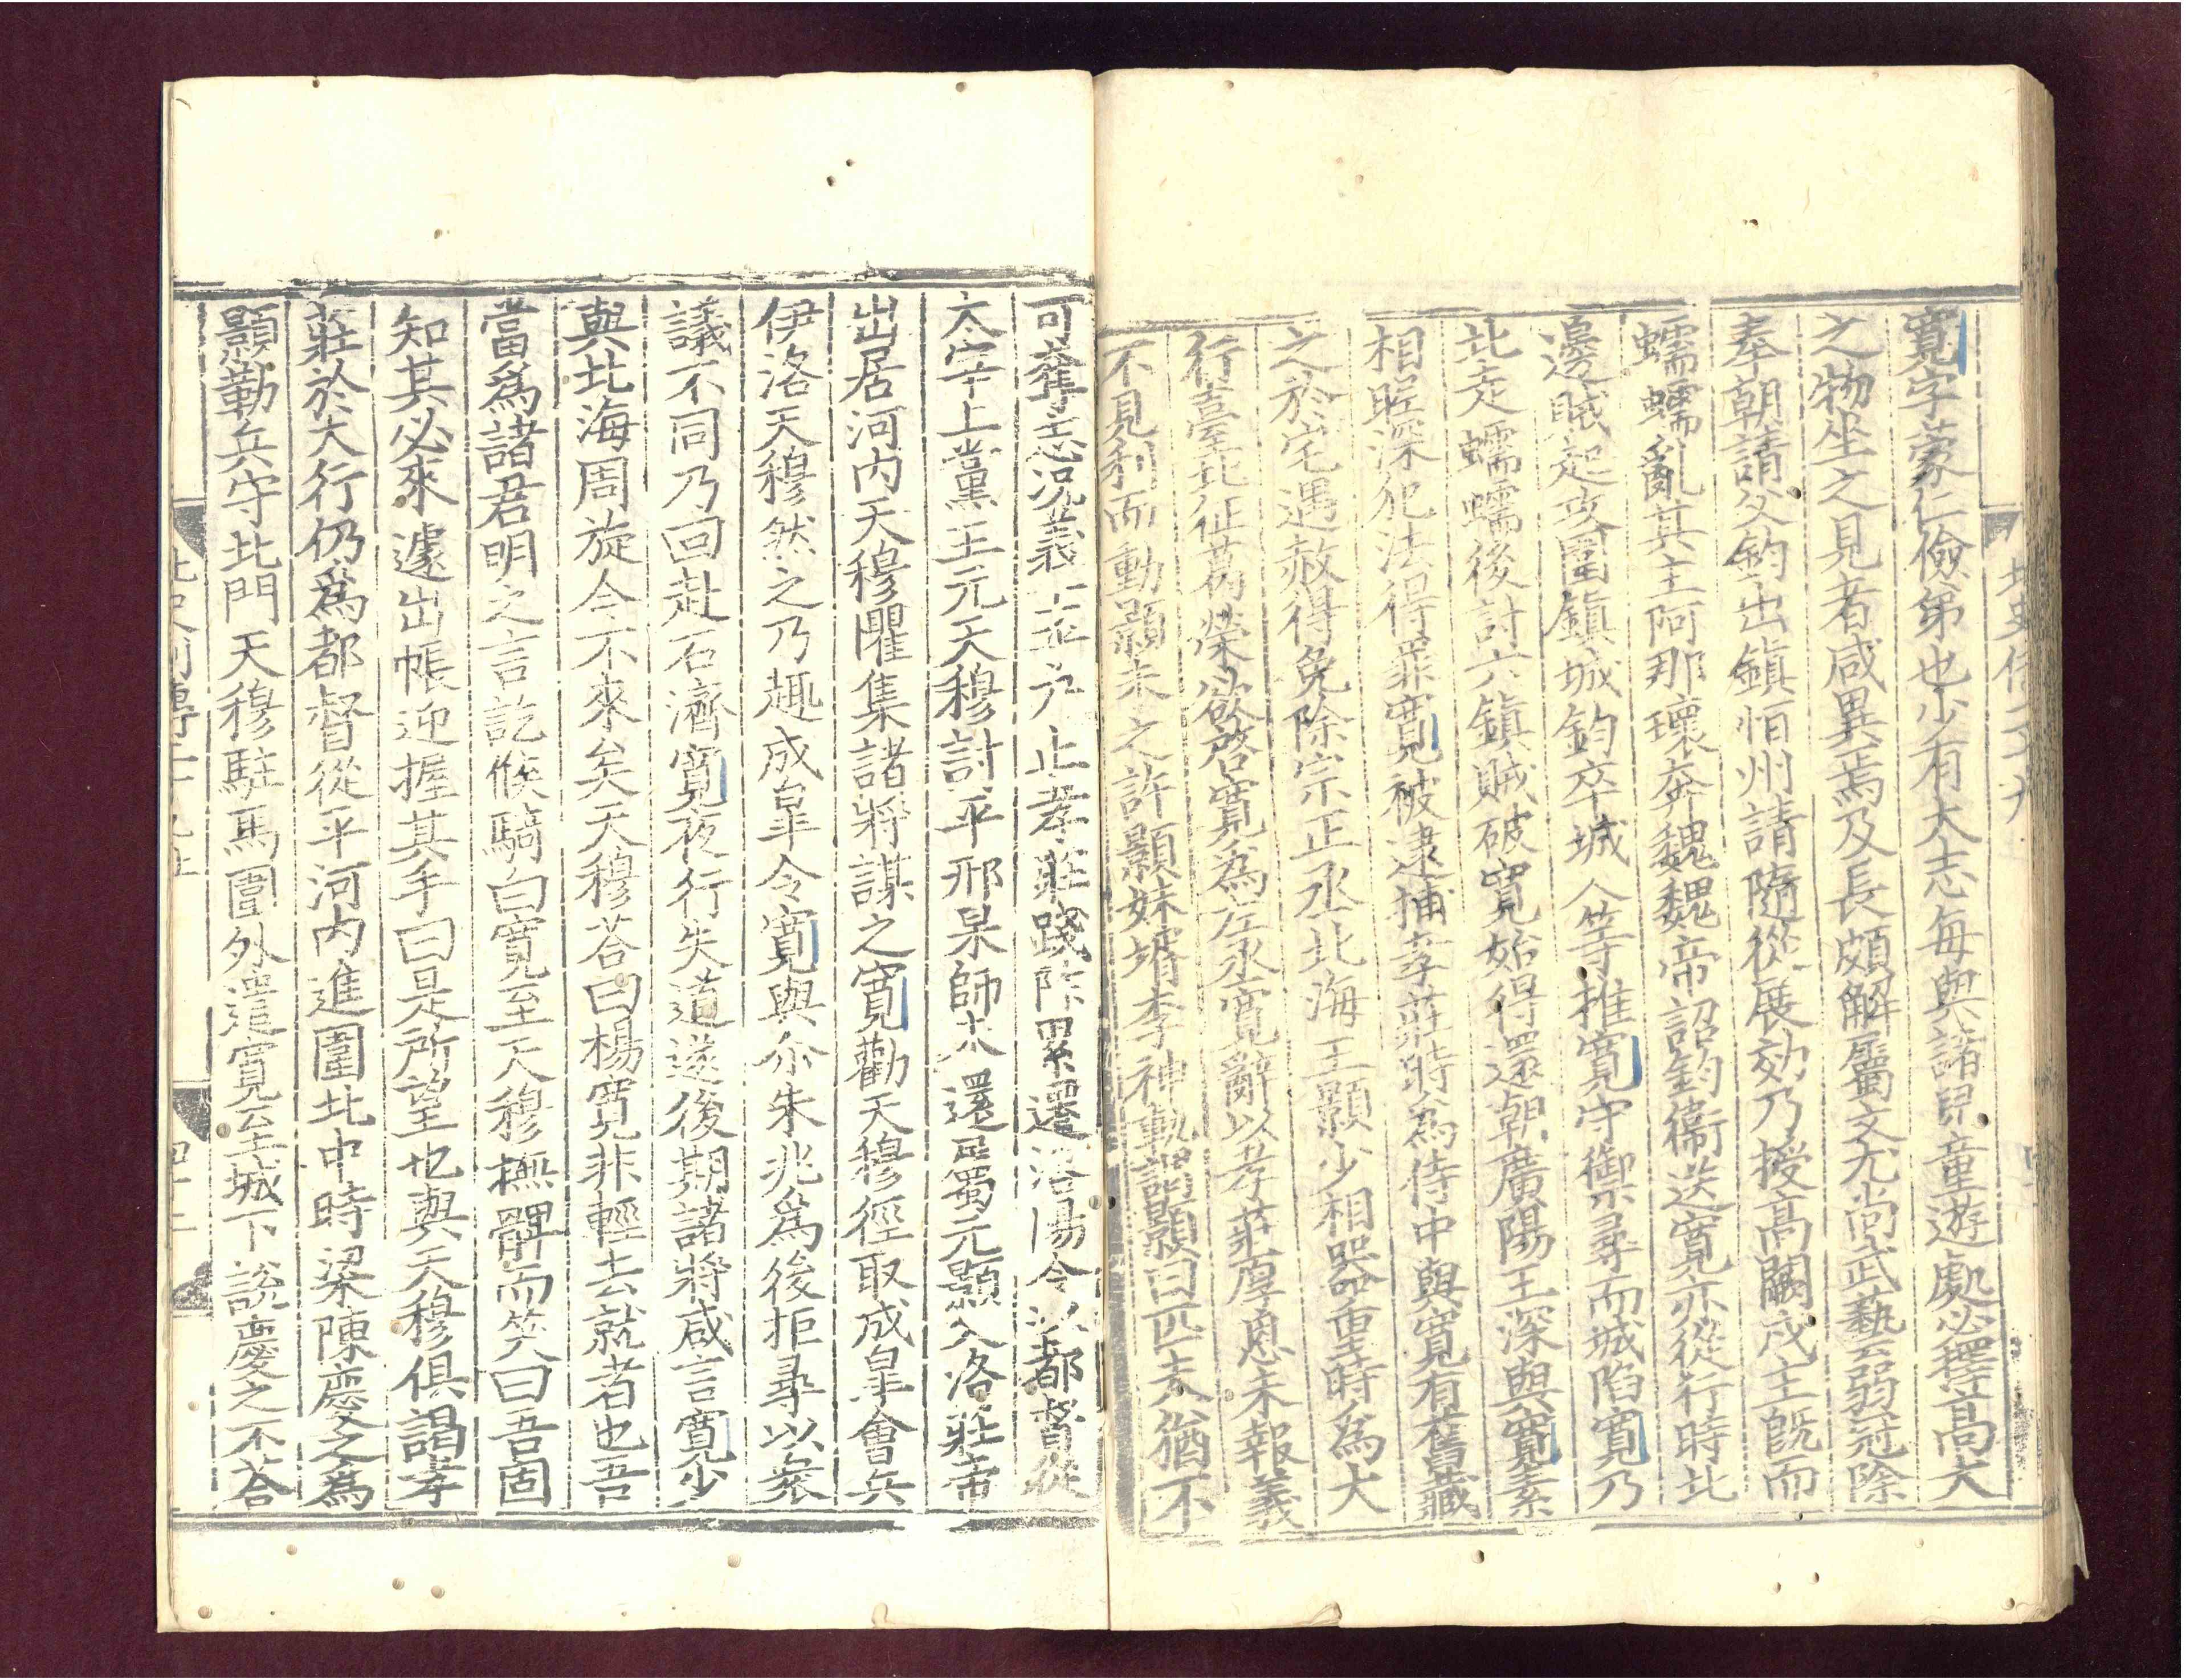 寬字蒙仁儉弟也少有大志每與諸兒童遊處必擇高大
之物坐之見者咸異焉及長頗解屬文尤尚武藝弱冠除
奉朝請父鈞出鎮恒州請隨從展効乃授高闕戍主既而
蠕蠕亂其主阿那瓌奔魏魏帝詔鈞衛送寬亦從行時北
邊賊起攻圍鎮城鈞卒城人等推寬守禦尋而城陷寬乃
北走蠕蠕後討六鎮賊破寬始得還朝廣陽王深與寬素
相昵深犯法得罪寬被逮捕孝莊時爲侍中與寬有舊藏
之於宅遇赦得免除宗正丞北海王顥少相器重時爲大
行臺北征葛榮欲啓寬爲左丞寬辭以孝莊厚恩未報義
不見利而動顥未之許顥妹婿李神軌謂顥曰匹夫猶不
可奪志況義士乎乃止孝莊踐阼累遷洛陽令以都督從
太宰上黨王元天穆討平邢杲師未還屬元顥入洛莊帝
出居河内天穆懼集諸將謀之寬勸天穆徑取成臯會兵
伊洛天穆然之乃趣成臯令寬與尒朱兆爲後拒尋以衆
議不同乃回赴石濟寬夜行失道遂後期諸將咸言寬少
與北海周旋今不來矣天穆荅曰楊寬非輕去就者也吾
當爲諸君明之言訖候騎白寬至天穆撫髀而笑曰吾固
知其必來遽出帳迎握其手曰是所望也與天穆俱謁孝
莊於大行仍爲都督從平河内進圍北中時梁陳慶之爲
顥勒兵守北門天穆駐馬圍外遣寬至城下說慶之不荅
北史列傳二十九
四十二